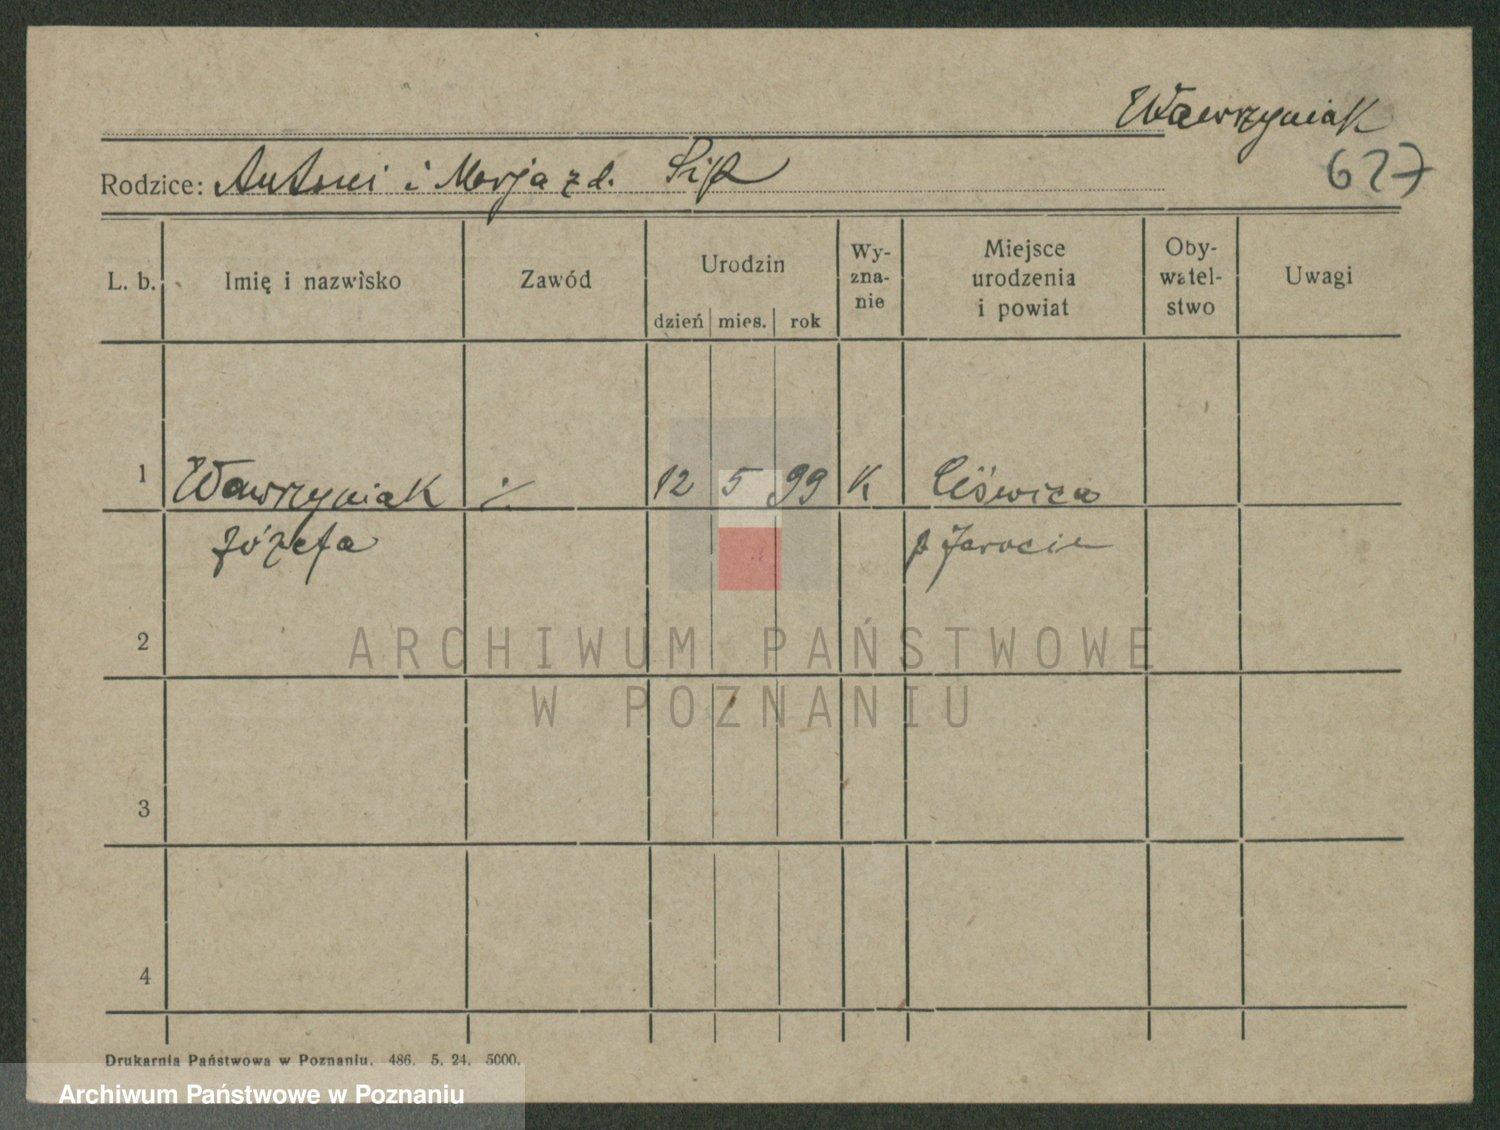 Wawrzyniak
627
Rodzice: Antoni i Marja z d.
L. b.
Imię i nazwisko
Zawód
Urodzin
dzień mies. rok
Wy-
zna-
nie
Miejsce
urodzenia
i powiat
Oby-
watel-
stwo
Uwagi
1 Wawrzyniak ·/. 12 5 99 K Ciświca
Józefa p Jarocin
2
3
4
ARCHIWUM PAŃSTWOWE
W POZNANIU
Drukarnia Państwowa w Poznaniu. 486. 5. 24. 5000.
Archiwum Państwowe w Poznaniu